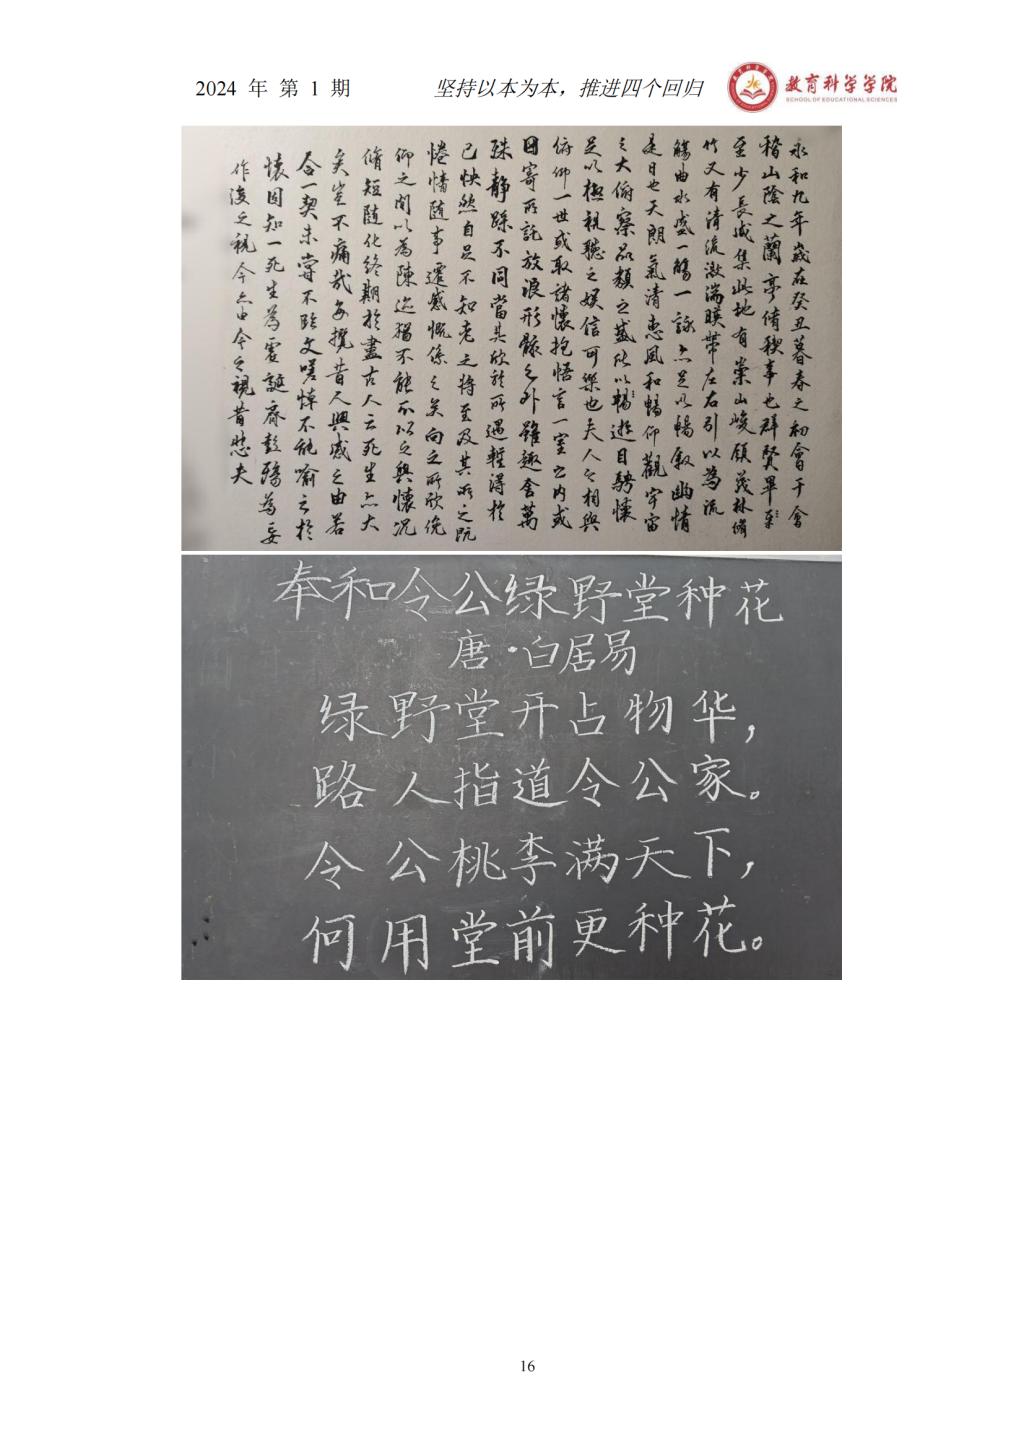 2024 年 第 1 期
坚持以本为本，推进四个回归
教育科学学院
SCHOOL OF EDUCATIONAL SCIENCES
永和九年歲在癸丑暮春之初會于會
稽山陰之蘭亭脩稧事也群賢畢
至少長咸集此地有崇山峻領茂林脩
竹又有清流激湍暎帶左右引以為流
觴曲水盛一觴一詠亦足以暢叙幽情
是日也天朗氣清惠風和暢仰觀宇宙
之大俯察品類之盛所以暢遊目騁懷
足以極視聽之娱信可樂也夫人之相與
俯仰一世或取諸懷抱悟言一室之内或
因寄所託放浪形骸之外雖趣舍萬
殊静躁不同當其欣於所遇輕得於
己怏然自足不知老之將至及其所之既
惓情隨事遷感慨係之矣向之所欣俛
仰之間以為陳迹猶不能不以之興懷况
脩短隨化終期於盡古人云死生亦大
矣豈不痛哉每攬昔人興感之由若
合一契未嘗不臨文嗟悼不能喻之於
懷固知一死生為虛誕齊彭殤為妄
作後之視今亦由今之視昔悲夫
奉和令公绿野堂种花
唐·白居易
绿野堂开占物华，
路人指道令公家。
令公桃李满天下，
何用堂前更种花。
16